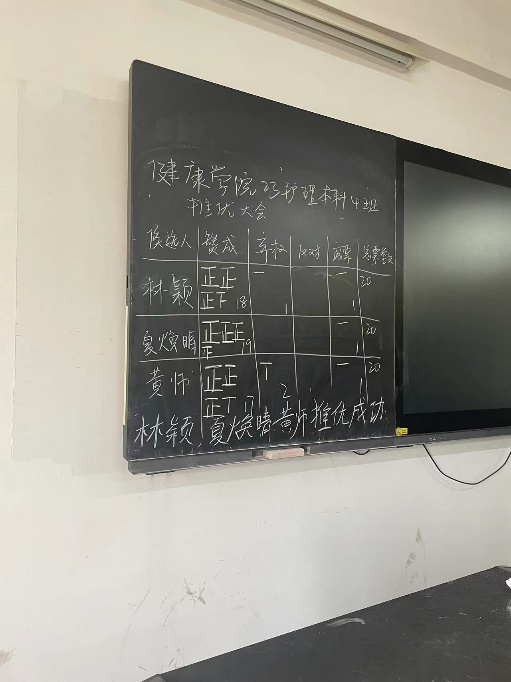 健康学院23护理本科4班
推优大会
候选人 赞成 弃权 反对 废票 总票数
林颖 正正正下 18 一 1 一 1 20
夏焕晴 正正正正 19 一 1 20
黄师 正正正丅 丅 2 一 1 20
林颖、夏焕晴黄师推优成功